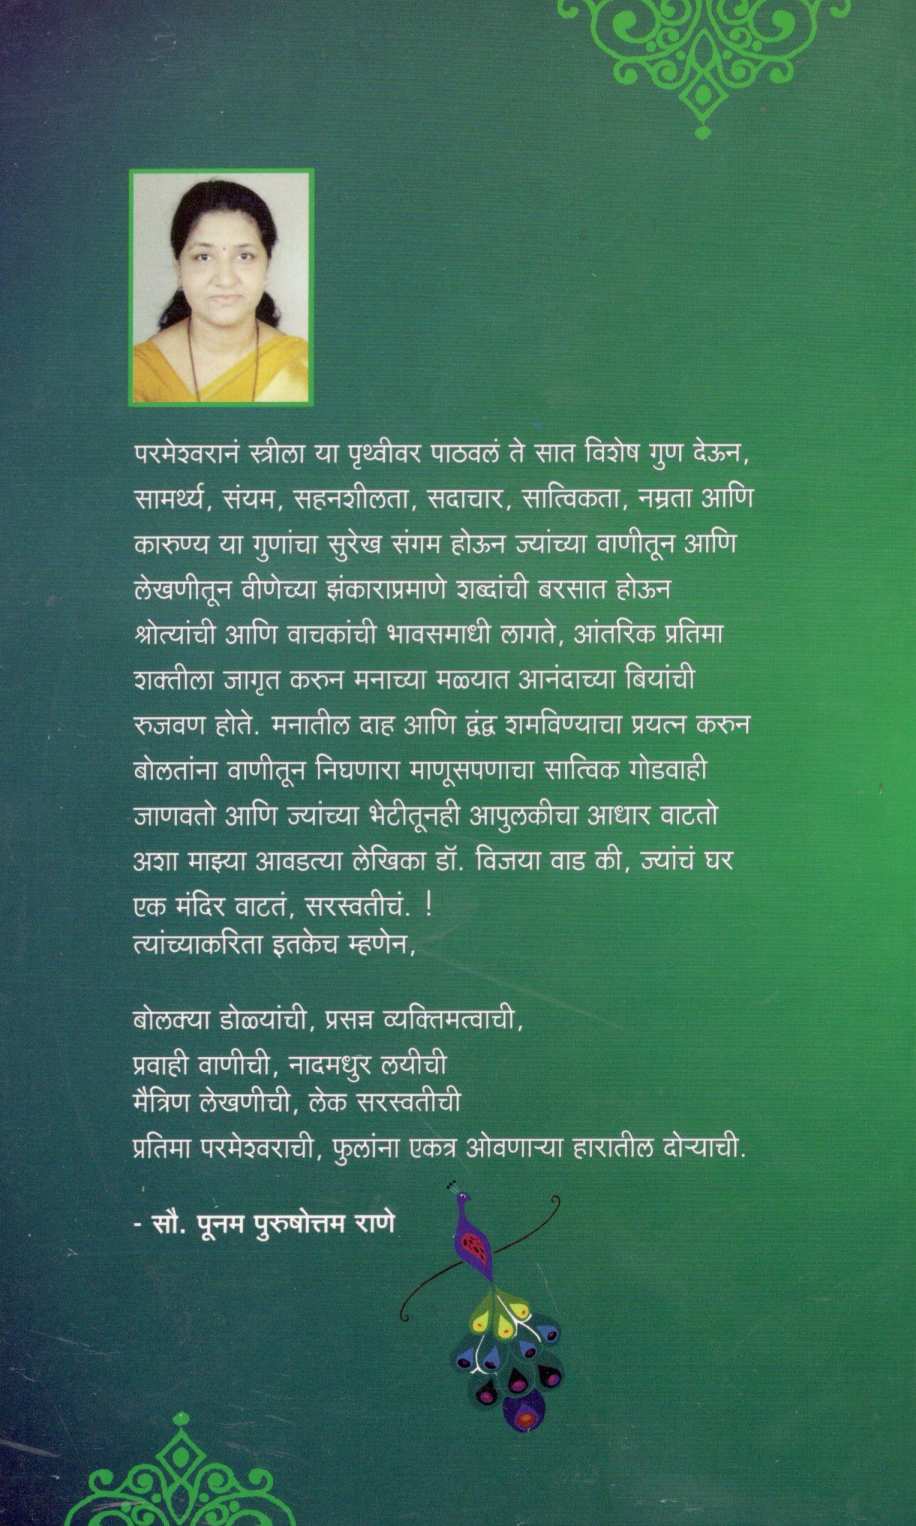 परमेश्वरानं स्त्रीला या पृथ्वीवर पाठवलं ते सात विशेष गुण देऊन,
सामर्थ्य, संयम, सहनशीलता, सदाचार, सात्विकता, नम्रता आणि
कारुण्य या गुणांचा सुरेख संगम होऊन ज्यांच्या वाणीतून आणि
लेखणीतून वीणेच्या झंकाराप्रमाणे शब्दांची बरसात होऊन
श्रोत्यांची आणि वाचकांची भावसमाधी लागते, आंतरिक प्रतिमा
शक्तीला जागृत करुन मनाच्या मळ्यात आनंदाच्या बियांची
रुजवण होते. मनातील दाह आणि द्वंद्व शमविण्याचा प्रयत्न करुन
बोलतांना वाणीतून निघणारा माणूसपणाचा सात्विक गोडवाही
जाणवतो आणि ज्यांच्या भेटीतूनही आपुलकीचा आधार वाटतो
अशा माझ्या आवडत्या लेखिका डॉ. विजया वाड की, ज्यांचं घर
एक मंदिर वाटतं, सरस्वतीचं. !
त्यांच्याकरिता इतकेच म्हणेन,
बोलक्या डोळ्यांची, प्रसन्न व्यक्तिमत्वाची,
प्रवाही वाणीची, नादमधुर लयीची
मैत्रिण लेखणीची, लेक सरस्वतीची
प्रतिमा परमेश्वराची, फुलांना एकत्र ओवणाऱ्या हारातील दोऱ्याची.
- सौ. पूनम पुरुषोत्तम राणे